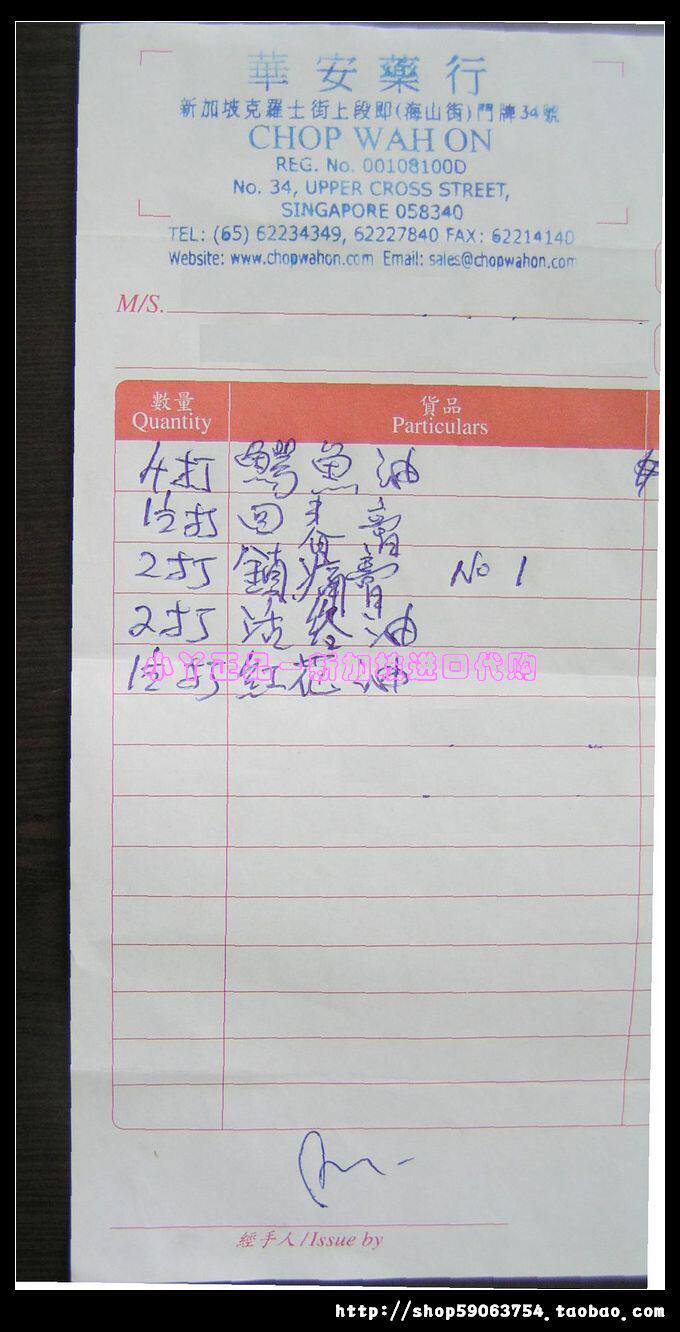 華安藥行
新加坡克羅士街上段即(海山街)門牌34號
CHOP WAH ON
REG. No. 00108100D
No. 34, UPPER CROSS STREET,
SINGAPORE 058340
TEL: (65) 62234349, 62227840 FAX: 62214140
Website: www.chopwahon.com Email: sales@chopwahon.com
M/S.
數量 貨品
Quantity Particulars
4打 鱷魚油
1½打 回春膏
2打 鎖痛膏 No 1
2打 活絡油
1½打 紅花油
小丫正品—新加坡进口代购
經手人/Issue by
http://shop59063754.taobao.com